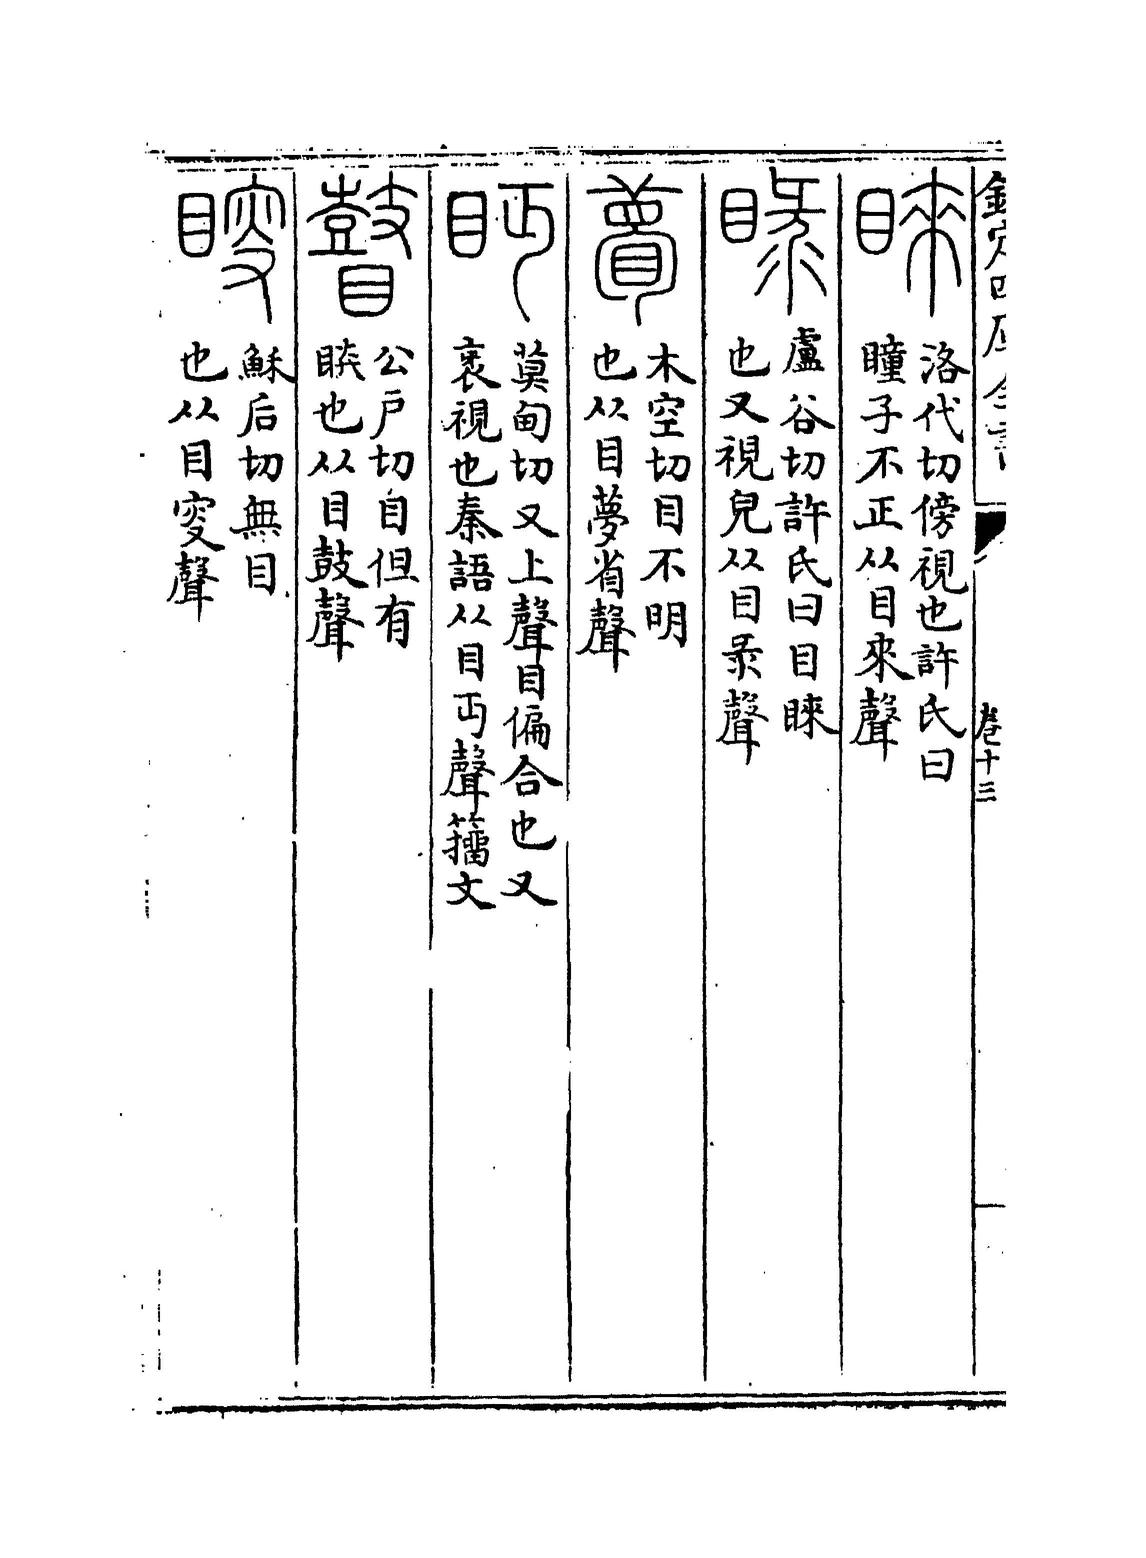 欽定四庫全書 卷十三
睞 洛代切傍視也許氏曰
瞳子不正从目來聲
睩 盧谷切許氏曰目睞
也又視皃从目彔聲
瞢 木空切目不明
也从目夢省聲
眄 莫甸切又上聲目偏合也又
衺視也秦語从目丏聲籒文
瞽 公戶切自但有
眹也从目鼓聲
瞍 穌后切無目
也从目叜聲